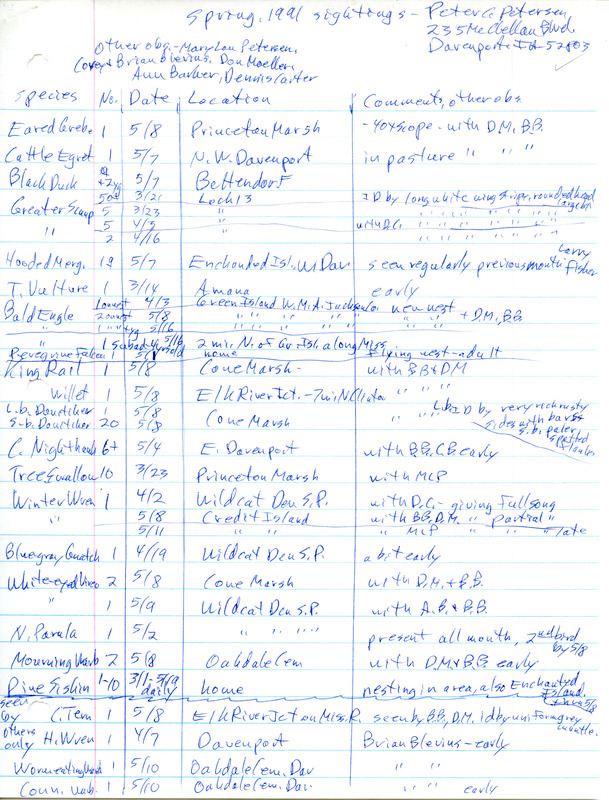 Spring, 1991 sightings - Peter C. Petersen
235 McClellan Blvd.
Davenport, IA 52803
Other obs. - Mary Lou Petersen,
Corey & Brian Blevins, Don Moeller,
Ann Barker, Dennis Carter
Species No. Date Location Comments, other obs.
Eared Grebe 1 5/8 Princeton Marsh - 40x scope - with D.M., B.B.
Cattle Egret 1 5/7 N.W. Davenport in pasture " " "
Black Duck 5/7 Bettendorf
Greater Scaup 50+ 3/21 Lock 13 ID by long white wing stripe, rounded head
5 3/23 " "
" 5 4/3 " with D.C.
2 4/16
Hooded Merg. 1♀ 5/7 Enchanted Isl. W. Dav seen regularly previous month Larry Fisher
T. Vulture 1 3/14 Amana early
Bald Eagle 1 on nest 4/3 Green Island W.M.A. Jackson Co. new nest
2 on nest 5/8 " " " " + D.M., B.B.
" 5/16 " " "
1 subad. 5/16 2 mi. N. of Gr. Isl. along Miss.
Peregrine Falcon 1 home flying west - adult
King Rail 1 5/8 Cone Marsh - with B.B. & D.M.
Willet 1 5/8 Elk River Jct. - 7 mi N Clinton " " "
L.b. Dowitcher 1 5/8 Cone Marsh L.b. ID by very rich rusty
S-b. Dowitcher 20 5/8 sides with bars
S.b. paler spotted flanks
C. Nighthawk 6+ 5/4 E. Davenport with B.B. C.B. early
Tree Swallow 10 3/23 Princeton Marsh with MLP
Winter Wren 1 4/2 Wildcat Den S.P. with D.C. - giving full song
" 5/8 Credit Island with B.B., D.M. " partial "
5/11 " " " MLP " " late
Bluegray Gnatch 1 4/19 Wildcat Den S.P. a bit early
White-eyed Vireo 2 5/8 Cone Marsh with D.M. & B.B.
" 1 5/9 Wildcat Den S.P. with A.B. & B.B.
N. Parula 1 5/2 " " " " present all month, 2nd bird by 5/8
Mourning Warb 2 5/8 Oakdale Cem. with D.M. & B.B. early
Pine Siskin 1-10 3/1-5/19 daily home nesting in area, also Enchanted Island. thru 5/8
seen by others only C. Tern 1 5/8 Elk River Jct on Miss. R. seen by B.B., D.M. id by uniform grey
H. Wren 1 4/7 Davenport Brian Blevins - early
Worm eating Warb 1 5/10 Oakdale Cem. Dav " "
Conn. Warb. 1 5/10 Oakdale Cem. Dav. " " early